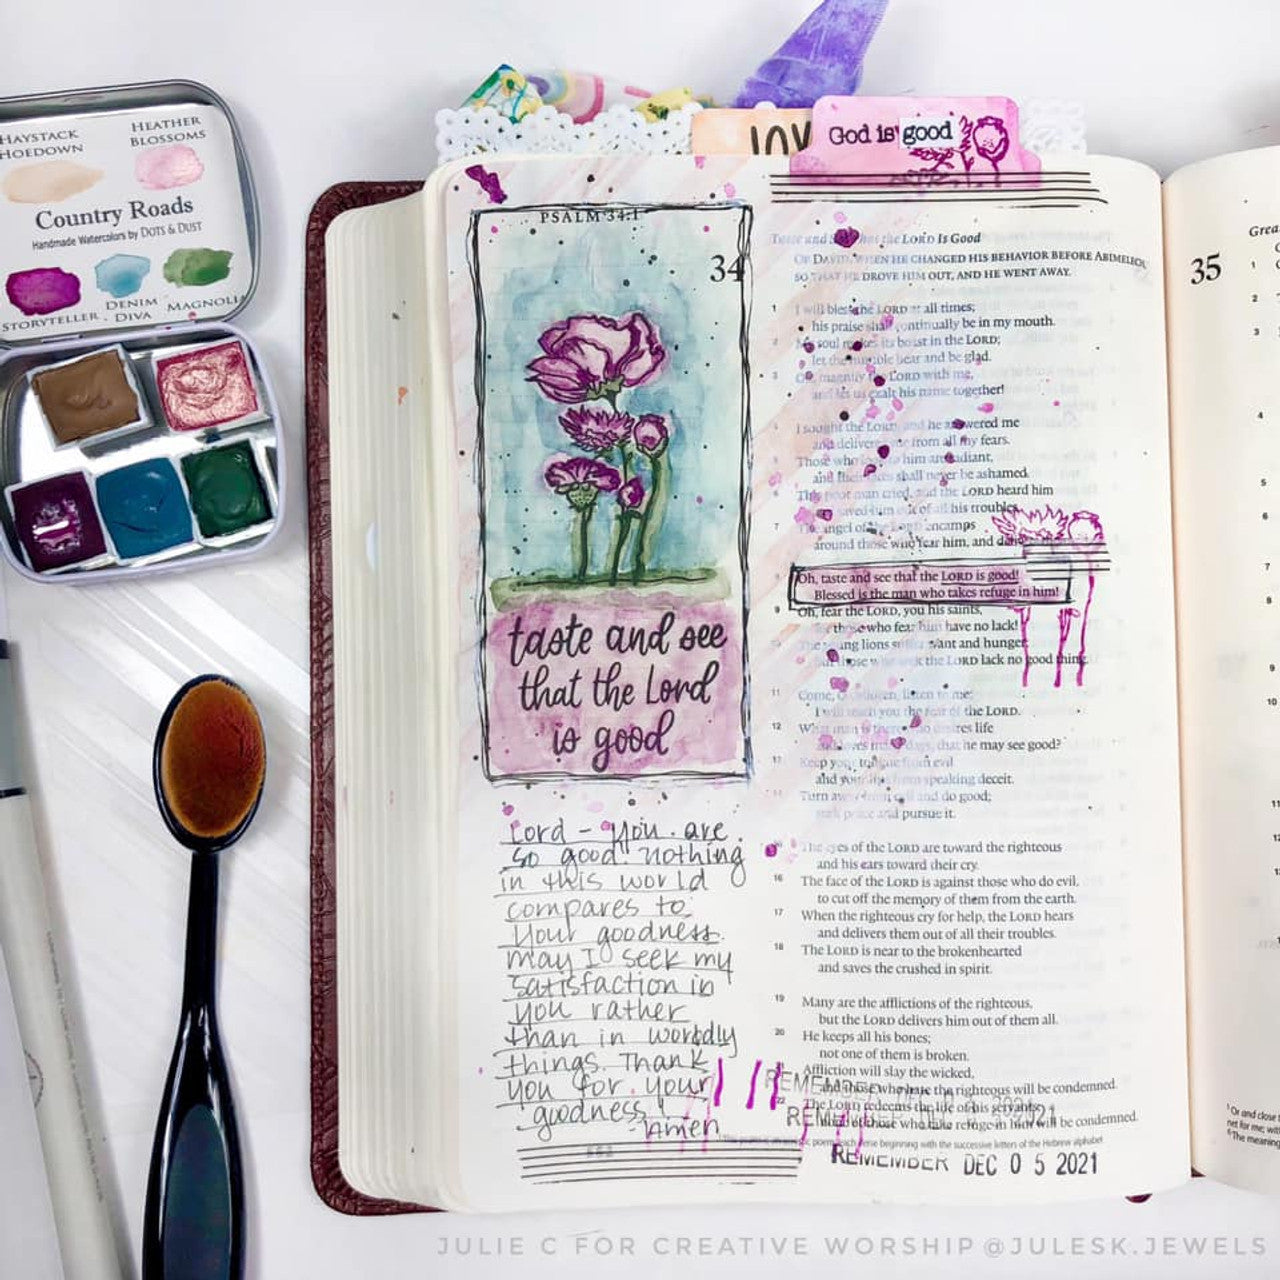 HAYSTACK
HOEDOWN
HEATHER
BLOSSOMS
Country Roads
Handmade Watercolors by DOTS & DUST
STORYTELLER
DENIM
DIVA
MAGNOLIA
God is good
PSALM 34:1
34
taste and see
that the Lord
is good
Lord - you are
so good. nothing
in this world
compares to
your goodness.
may I seek my
satisfaction in
you rather
than in worldly
things. Thank
you for your
goodness!
Amen
Taste and See That the LORD Is Good
OF DAVID, WHEN HE CHANGED HIS BEHAVIOR BEFORE ABIMELECH,
SO THAT HE DROVE HIM OUT, AND HE WENT AWAY.
1 I will bless the LORD at all times;
his praise shall continually be in my mouth.
2 My soul makes its boast in the LORD;
let the humble hear and be glad.
3 Oh, magnify the LORD with me,
and let us exalt his name together!
4 I sought the LORD, and he answered me
and delivered me from all my fears.
5 Those who look to him are radiant,
and their faces shall never be ashamed.
6 This poor man cried, and the LORD heard him
and saved him out of all his troubles.
7 The angel of the LORD encamps
around those who fear him, and
Oh, taste and see that the LORD is good!
Blessed is the man who takes refuge in him!
9 Oh, fear the LORD, you his saints,
for those who fear him have no lack!
The young lions suffer want and hunger;
but those who seek the LORD lack no good thing.
11 Come, O children, listen to me;
I will teach you the fear of the LORD.
12 What man is there who desires life
and loves many days, that he may see good?
13 Keep your tongue from evil
and your lips from speaking deceit.
14 Turn away from evil and do good;
seek peace and pursue it.
The eyes of the LORD are toward the righteous
and his ears toward their cry.
16 The face of the LORD is against those who do evil,
to cut off the memory of them from the earth.
17 When the righteous cry for help, the LORD hears
and delivers them out of all their troubles.
18 The LORD is near to the brokenhearted
and saves the crushed in spirit.
19 Many are the afflictions of the righteous,
but the LORD delivers him out of them all.
20 He keeps all his bones;
not one of them is broken.
Affliction will slay the wicked,
and those who hate the righteous will be condemned.
22 The LORD redeems the life of his servants;
none of those who take refuge in him will be condemned.
REMEMBER
REMEMBER
REMEMBER DEC 05 2021
35
JULIE C FOR CREATIVE WORSHIP @JULESK.JEWELS